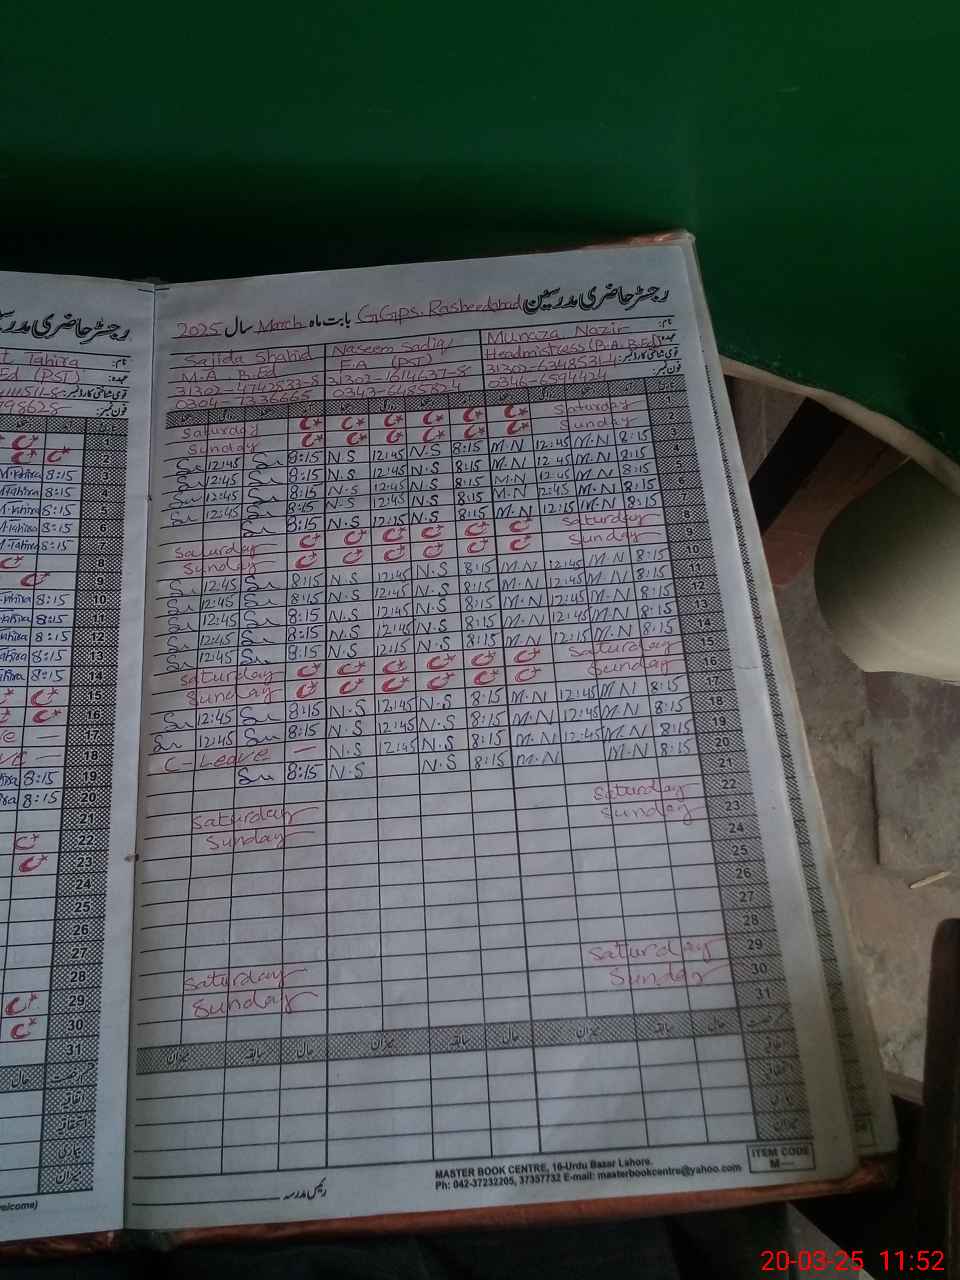 رجسٹر حاضری مدرسین بابت ماہ March سال 2025 GGPS. Rasheedabad
نام: Munaza Nazir Naseem Sadiq Sajida Shahid
عہدہ: Headmistress (B.A, B.Ed) F.A (PST) M.A, B.Ed
قومی شناختی کارڈ نمبر: 31302-6348531-4 31302-1614637-8 31302-4742533-8
فون نمبر: 0346-6594424 0343-6485824 0304-7336665
1 Saturday Saturday
2 Sunday Sunday
3 8:15 M.N 12:45 M.N 8:15 N.S 12:45 N.S 8:15 Su 12:45 Su
4 8:15 M.N 12:45 M.N 8:15 N.S 12:45 N.S 8:15 Su 12:45 Su
5 8:15 M.N 12:45 M.N 8:15 N.S 12:45 N.S 8:15 Su 12:45 Su
6 8:15 M.N 12:45 M.N 8:15 N.S 12:45 N.S 8:15 Su 12:45 Su
7 8:15 M.N 12:15 M.N 8:15 N.S 12:15 N.S 8:15 Su
8 Saturday Saturday
9 Sunday Sunday
10 8:15 M.N 12:45 M.N 8:15 N.S 12:45 N.S 8:15 Su 12:45 Su
11 8:15 M.N 12:45 M.N 8:15 N.S 12:45 N.S 8:15 Su 12:45 Su
12 8:15 M.N 12:45 M.N 8:15 N.S 12:45 N.S 8:15 Su 12:45 Su
8:15 M.N 12:45 M.N 8:15 N.S 12:45 N.S 8:15 Su 12:45 Su
14 8:15 M.N 12:15 M.N 8:15 N.S 12:15 N.S 8:15 Su 12:45 Su
Saturday Saturday
16 Sunday Sunday
8:15 M.N 12:45 M.N 8:15 N.S 12:45 N.S 8:15 Su 12:45 Su
18 8:15 M.N 12:45 M.N 8:15 N.S 12:45 N.S 8:15 Su 12:45 Su
19 8:15 M.N 12:45 M.N 8:15 N.S 12:45 N.S — C-Leave
20 8:15 M.N M.N 8:15 N.S N.S 8:15 Su
21
22 Saturday Saturday
23 Sunday Sunday
24
25
26
27
28
29 Saturday Saturday
30 Sunday Sunday
31
حال سابقہ میزان حال سابقہ میزان حال سابقہ میزان
میزان
رئیس مدرسہ
MASTER BOOK CENTRE, 16-Urdu Bazar Lahore.
Ph: 042-37232205, 37357732 E-mail: masterbookcentre@yahoo.com
ITEM CODE
M—
رجسٹر حاضری
نام: Tahira
عہدہ: (PST)
قومی شناختی کارڈ نمبر:
فون نمبر:
1
2
3 8:15 M.Tahira
4 8:15 M.Tahira
5 8:15 M.Tahira
6 8:15 M.Tahira
7 8:15 M.Tahira
8
9
10 8:15
11 8:15
12 8:15
13 8:15
14 8:15
15
16
17 —
18 —
19 8:15
20 8:15
21
22
23
24
25
26
27
28
29
30
31
حال
میزان
20-03-25 11:52